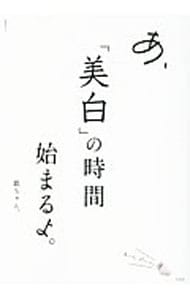 あ、
『美白』の時間
始まるよ。